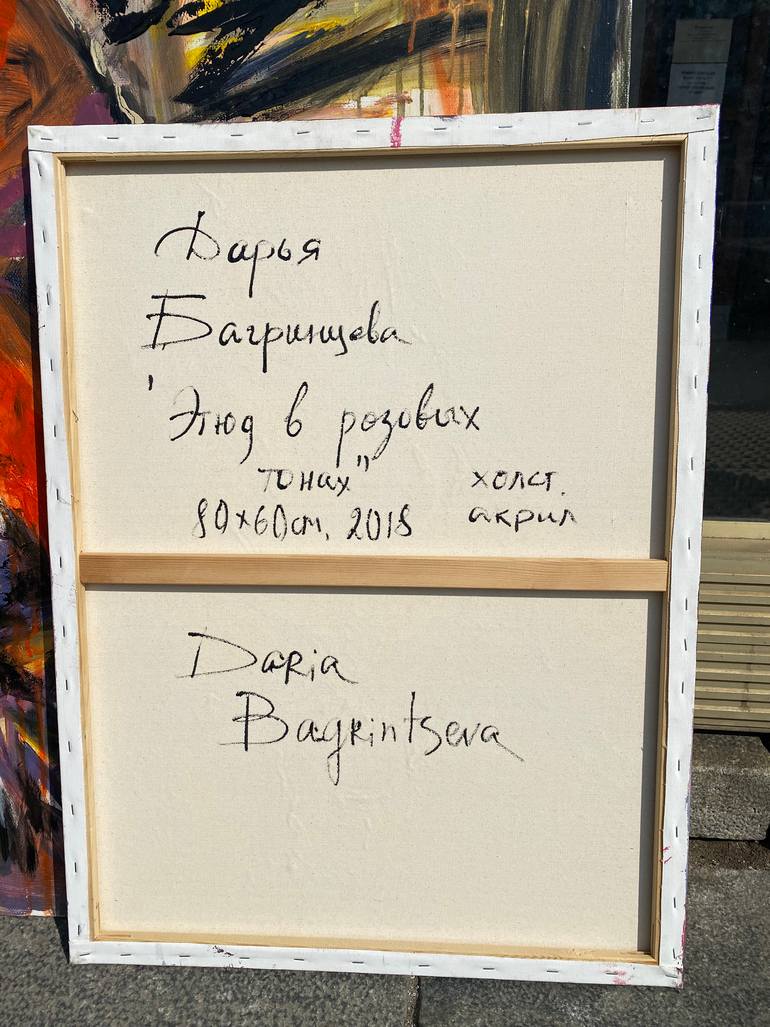 Дарья
Багринцева
"Этюд в розовых
тонах" холст,
80х60см, 2018 акрил
Daria
Bagrintseva